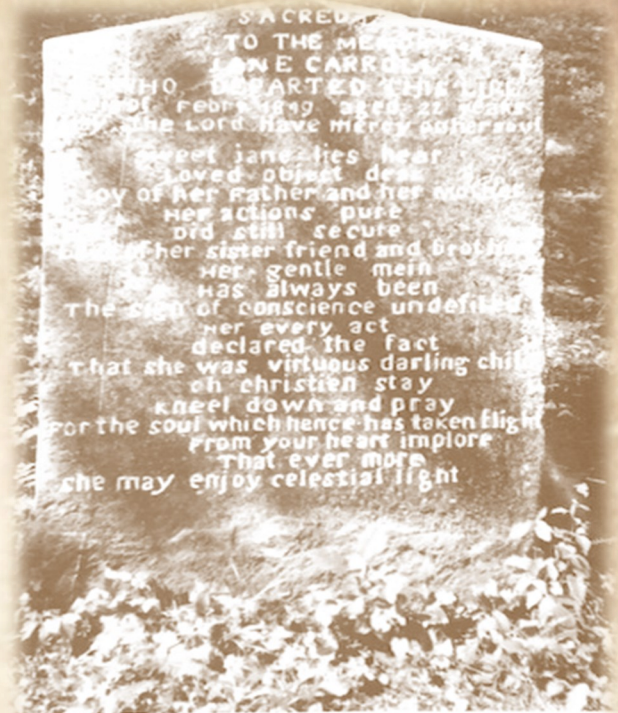 SACRED
TO THE MEM
JANE CARROL
WHO DEPARTED THIS LIFE
of Febry 1849 aged 22 years
the Lord have mercy on her soul
sweet jane lies hear
Loved object dear
oy of her Father and her mother
Her actions pure
Did still secure
of her sister friend and broth
Her gentle mein
Has always been
The sign of conscience undefiled
Her every act
declared the fact
That she was virtuous darling child
oh christien stay
kneel down and pray
For the soul which hence has taken flight
From your heart implore
That ever more
she may enjoy celestial light